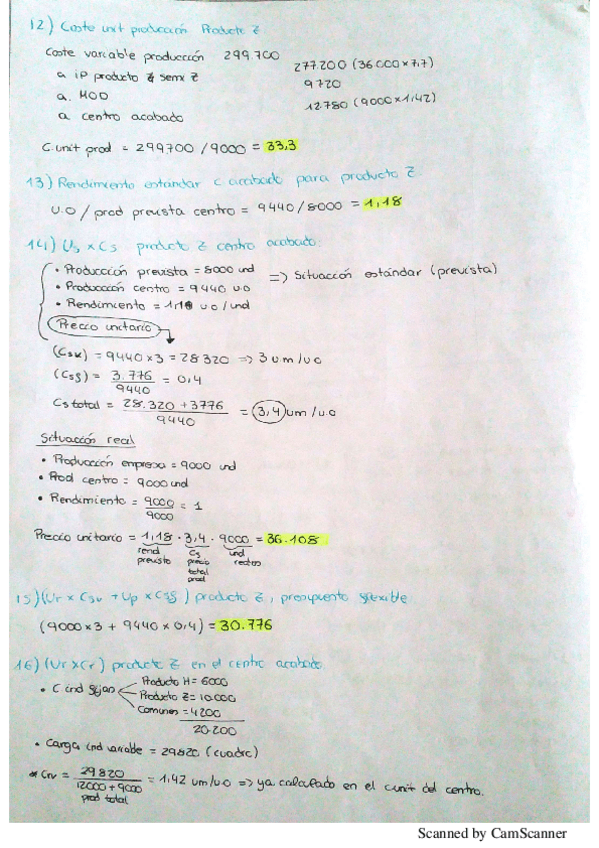 12) Coste unit producción Producto Z
Coste variable producción 299700
a iP producto Z semi Z 277.200 (36000x7,7)
a. MOD 9720
a centro acabado 12.780 (9000x1,42)
C.unit prod = 299700/9000 = 33,3
13) Rendimiento estándar c acabado para producto Z
U.O / prod prevista centro = 9440/8000 = 1,18
14) Us x Cs producto Z centro acabado:
• Producción prevista = 8000 und => Situación estándar (prevista)
• Producción centro = 9440 u.o
• Rendimiento = 1,18 uo/und
Precio unitario
(Csv) = 9440x3 = 28320 => 3 um/uo
(Csf) = 3.776 / 9440 = 0,4
Cs total = 28.320 + 3776 / 9440 = 3,4 um/u.o
Situación real
• Producción empresa = 9000 und
• Prod centro = 9000 und
• Rendimiento = 9000 / 9000 = 1
Precio unitario = 1,18 · 3,4 · 9000 = 36.108
rend previsto Cs precio total prod und reales
15) (Ur x Csv + Up x Csf) producto Z, presupuesto flexible
(9000x3 + 9440x0,4) = 30.776
16) (Ur x Cr) producto Z en el centro acabado
• C ind fijan Producto H = 6000
Producto Z = 10.000
Comunes = 4200
20.200
• Carga ind variable = 29820 (cuadro)
* Crv = 29820 / 12000 + 9000 = 1,42 um/u.o => ya calculado en el cunit del centro.
prod total
Scanned by CamScanner